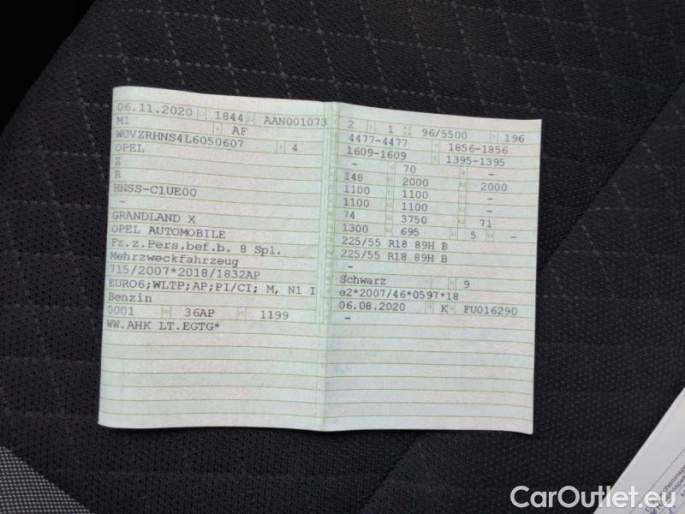 06.11.2020 1844 AAN001073
M1 AF
W0VZRHNS4L6050607 4
OPEL
Z
R
HNSS-C1UE00
-
GRANDLAND X
OPEL AUTOMOBILE
Fz.z.Pers.bef.b. 8 Spl.
Mehrzweckfahrzeug
715/2007*2018/1832AP
EURO6;WLTP;AP;PI/CI; M, N1 I
Benzin
0001 36AP 1199
WW.AHK LT.EGTG*
2 1 96/5500 196
4477-4477 1856-1856
1609-1609 1395-1395
- 70 -
148 2000 2000
1100 1100
1100 1100 -
74 3750 71
1300 695 5 -
225/55 R18 89H B
225/55 R18 89H B
-
Schwarz 9
e2*2007/46*0597*18
06.08.2020 K FU016290
-
CarOutlet.eu